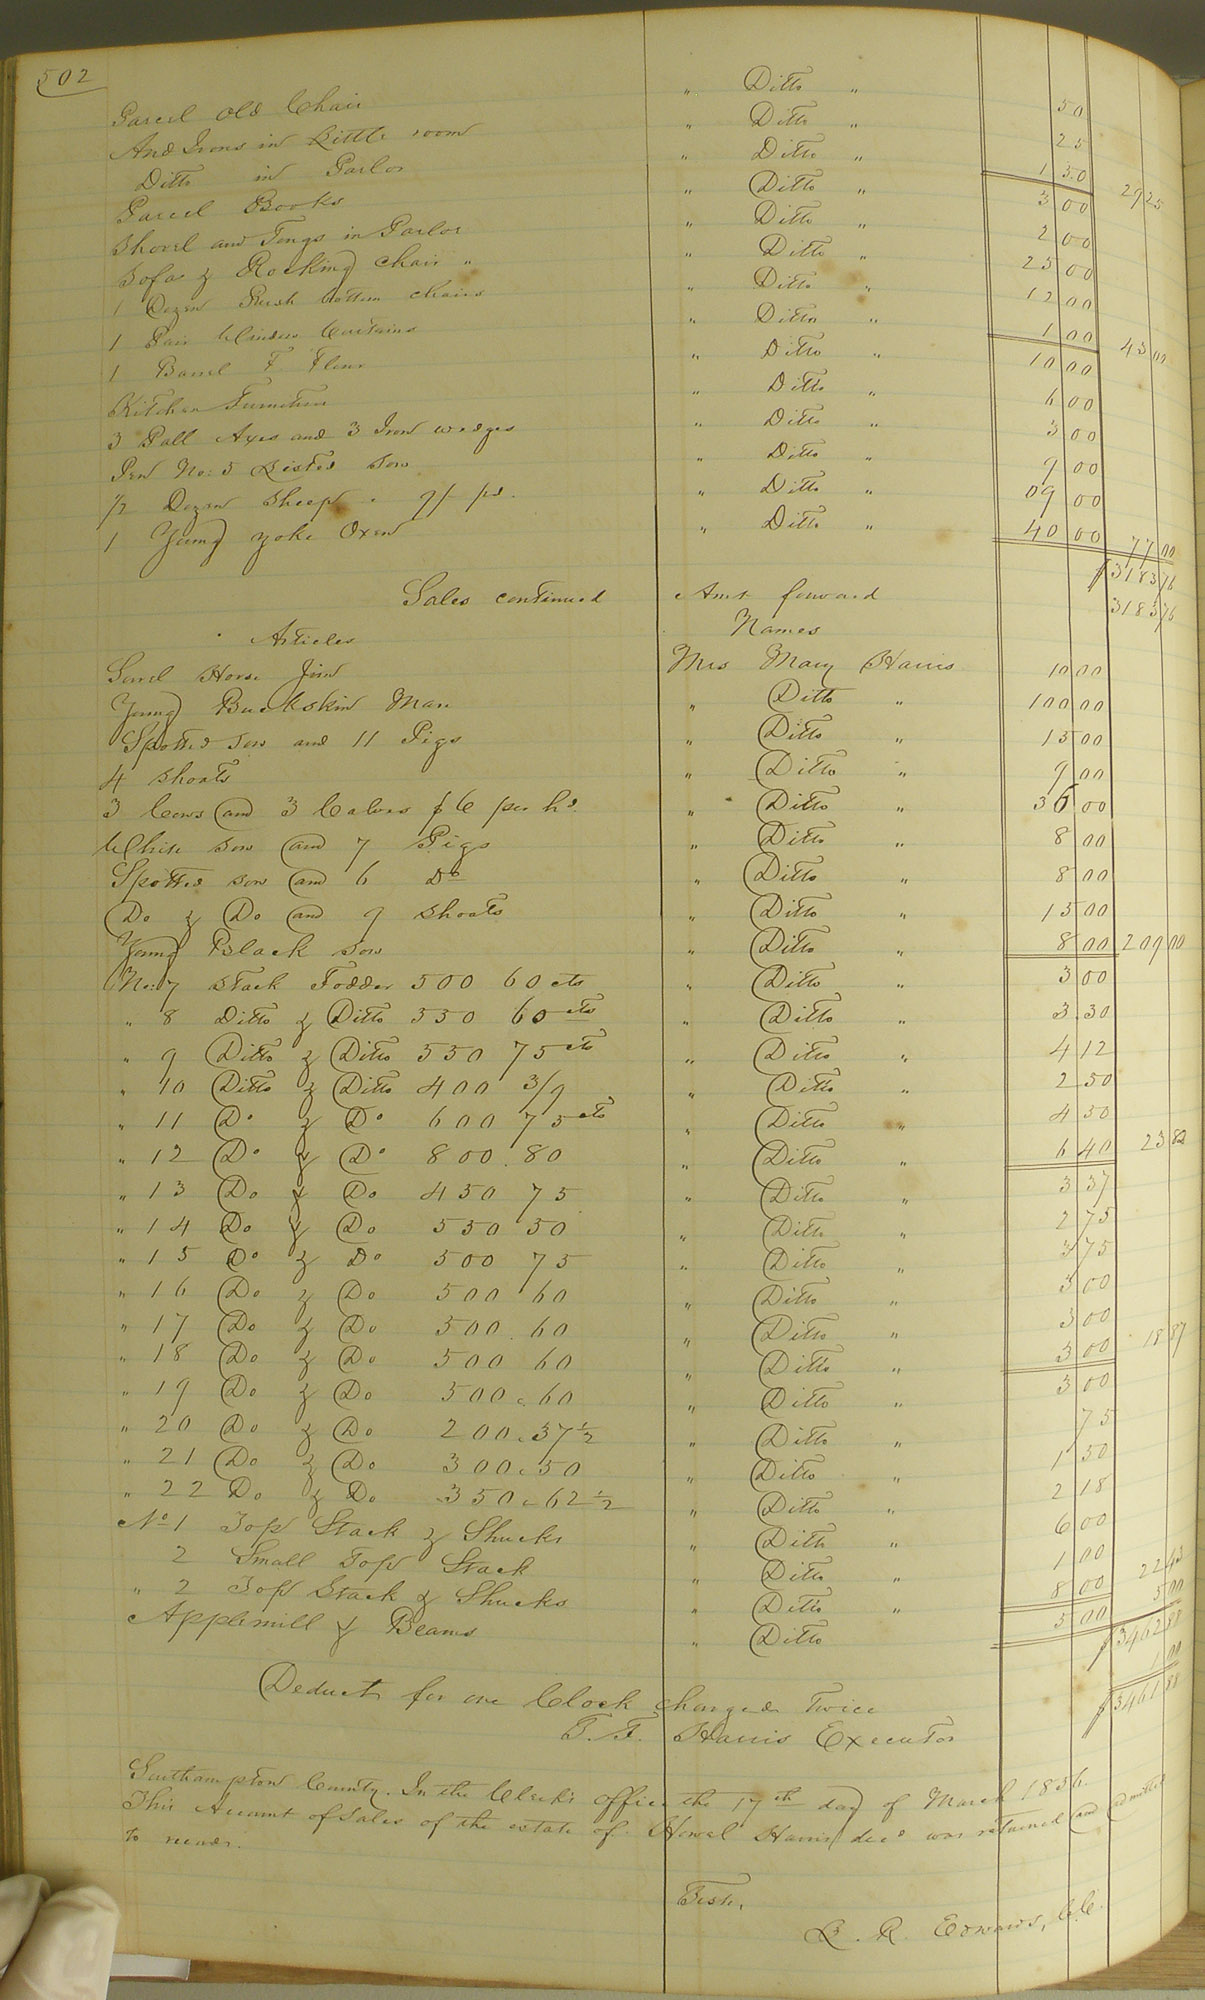 502
Parcel old Chair " Ditto " 50
And Irons in Little room " Ditto " 25
Ditto in Parlor " Ditto " 1 50 29 25
Parcel Books " Ditto " 3 00
Shovel and Tongs in Parlor " Ditto " 2 00
Sofa & Rocking chair " " Ditto " 25 00
1 Dozen Rush bottom chairs " Ditto " 12 00
1 Pair Window Curtains " Ditto " 1 00 43 00
1 Barrel F. Flour " Ditto " 10 00
Kitchen Furniture " Ditto " 6 00
3 Poll Axes and 3 Iron wedges " Ditto " 3 00
Pen No: 5 Listed Sow " Ditto " 9 00
1/2 Dozen Sheep 9/ pr. " Ditto " 09 00
1 Young yoke Oxen " Ditto " 40 00 77 00
$3183 76
Sales continued Amt forward 3183 76
Articles Names
Sorrel Horse Jim Mrs Mary Harris 10 00
Young Buckskin Mare " Ditto " 100 00
Spotted Sow and 11 Pigs " Ditto " 15 00
4 Shoats " Ditto " 9 00
3 Cows and 3 Calves $6 per hd. " Ditto " 36 00
White sow and 7 Pigs " Ditto " 8 00
Spotted sow and 6 Do " Ditto " 8 00
Do & Do and 9 shoats " Ditto " 15 00
Young Black sow " Ditto " 8 00 209 00
No: 7 Stack Fodder 500 60 cts " Ditto " 3 00
" 8 Ditto & Ditto 550 60 cts " Ditto " 3.30
" 9 Ditto & Ditto 550 75 cts " Ditto " 4 12
" 10 Ditto & Ditto 400 3/9 " Ditto " 2 50
" 11 Do & Do 600 75 cts " Ditto " 4 50
" 12 Do & Do 800.80 " Ditto " 6 40 23 82
" 13 Do & Do 450 75 " Ditto " 3 37
" 14 Do & Do 550 50 " Ditto " 2 75
" 15 Do & Do 500 75 " Ditto " 3 75
" 16 Do & Do 500 60 " Ditto " 3 00
" 17 Do & Do 500.60 " Ditto " 3 00
" 18 Do & Do 500 60 " Ditto " 3 00 18 87
" 19 Do & Do 500 " 60 " Ditto " 3 00
" 20 Do & Do 200 " 37 1/2 " Ditto " 75
" 21 Do & Do 300 " 50 " Ditto " 1 50
" 22 Do & Do 350 " 62 1/2 " Ditto " 2 18
No 1 Top Stack & Shucks " Ditto " 6 00
2 Small Top Stack " Ditto " 1 00
" 2 Top Stack & Shucks " Ditto " 8 00 22 43
Applemill & Beams " Ditto 5 00 5 00
$3462 88
Deduct for one Clock charged twice 1 00
$3461 88
T. F. Harris Executor
Southampton County. In the Clerk's office the 17th day of March 1836.
This Account of Sales of the estate of Howel Harris decd was returned and admitted
to record.
Teste,
L. R. Edwards, C.C.